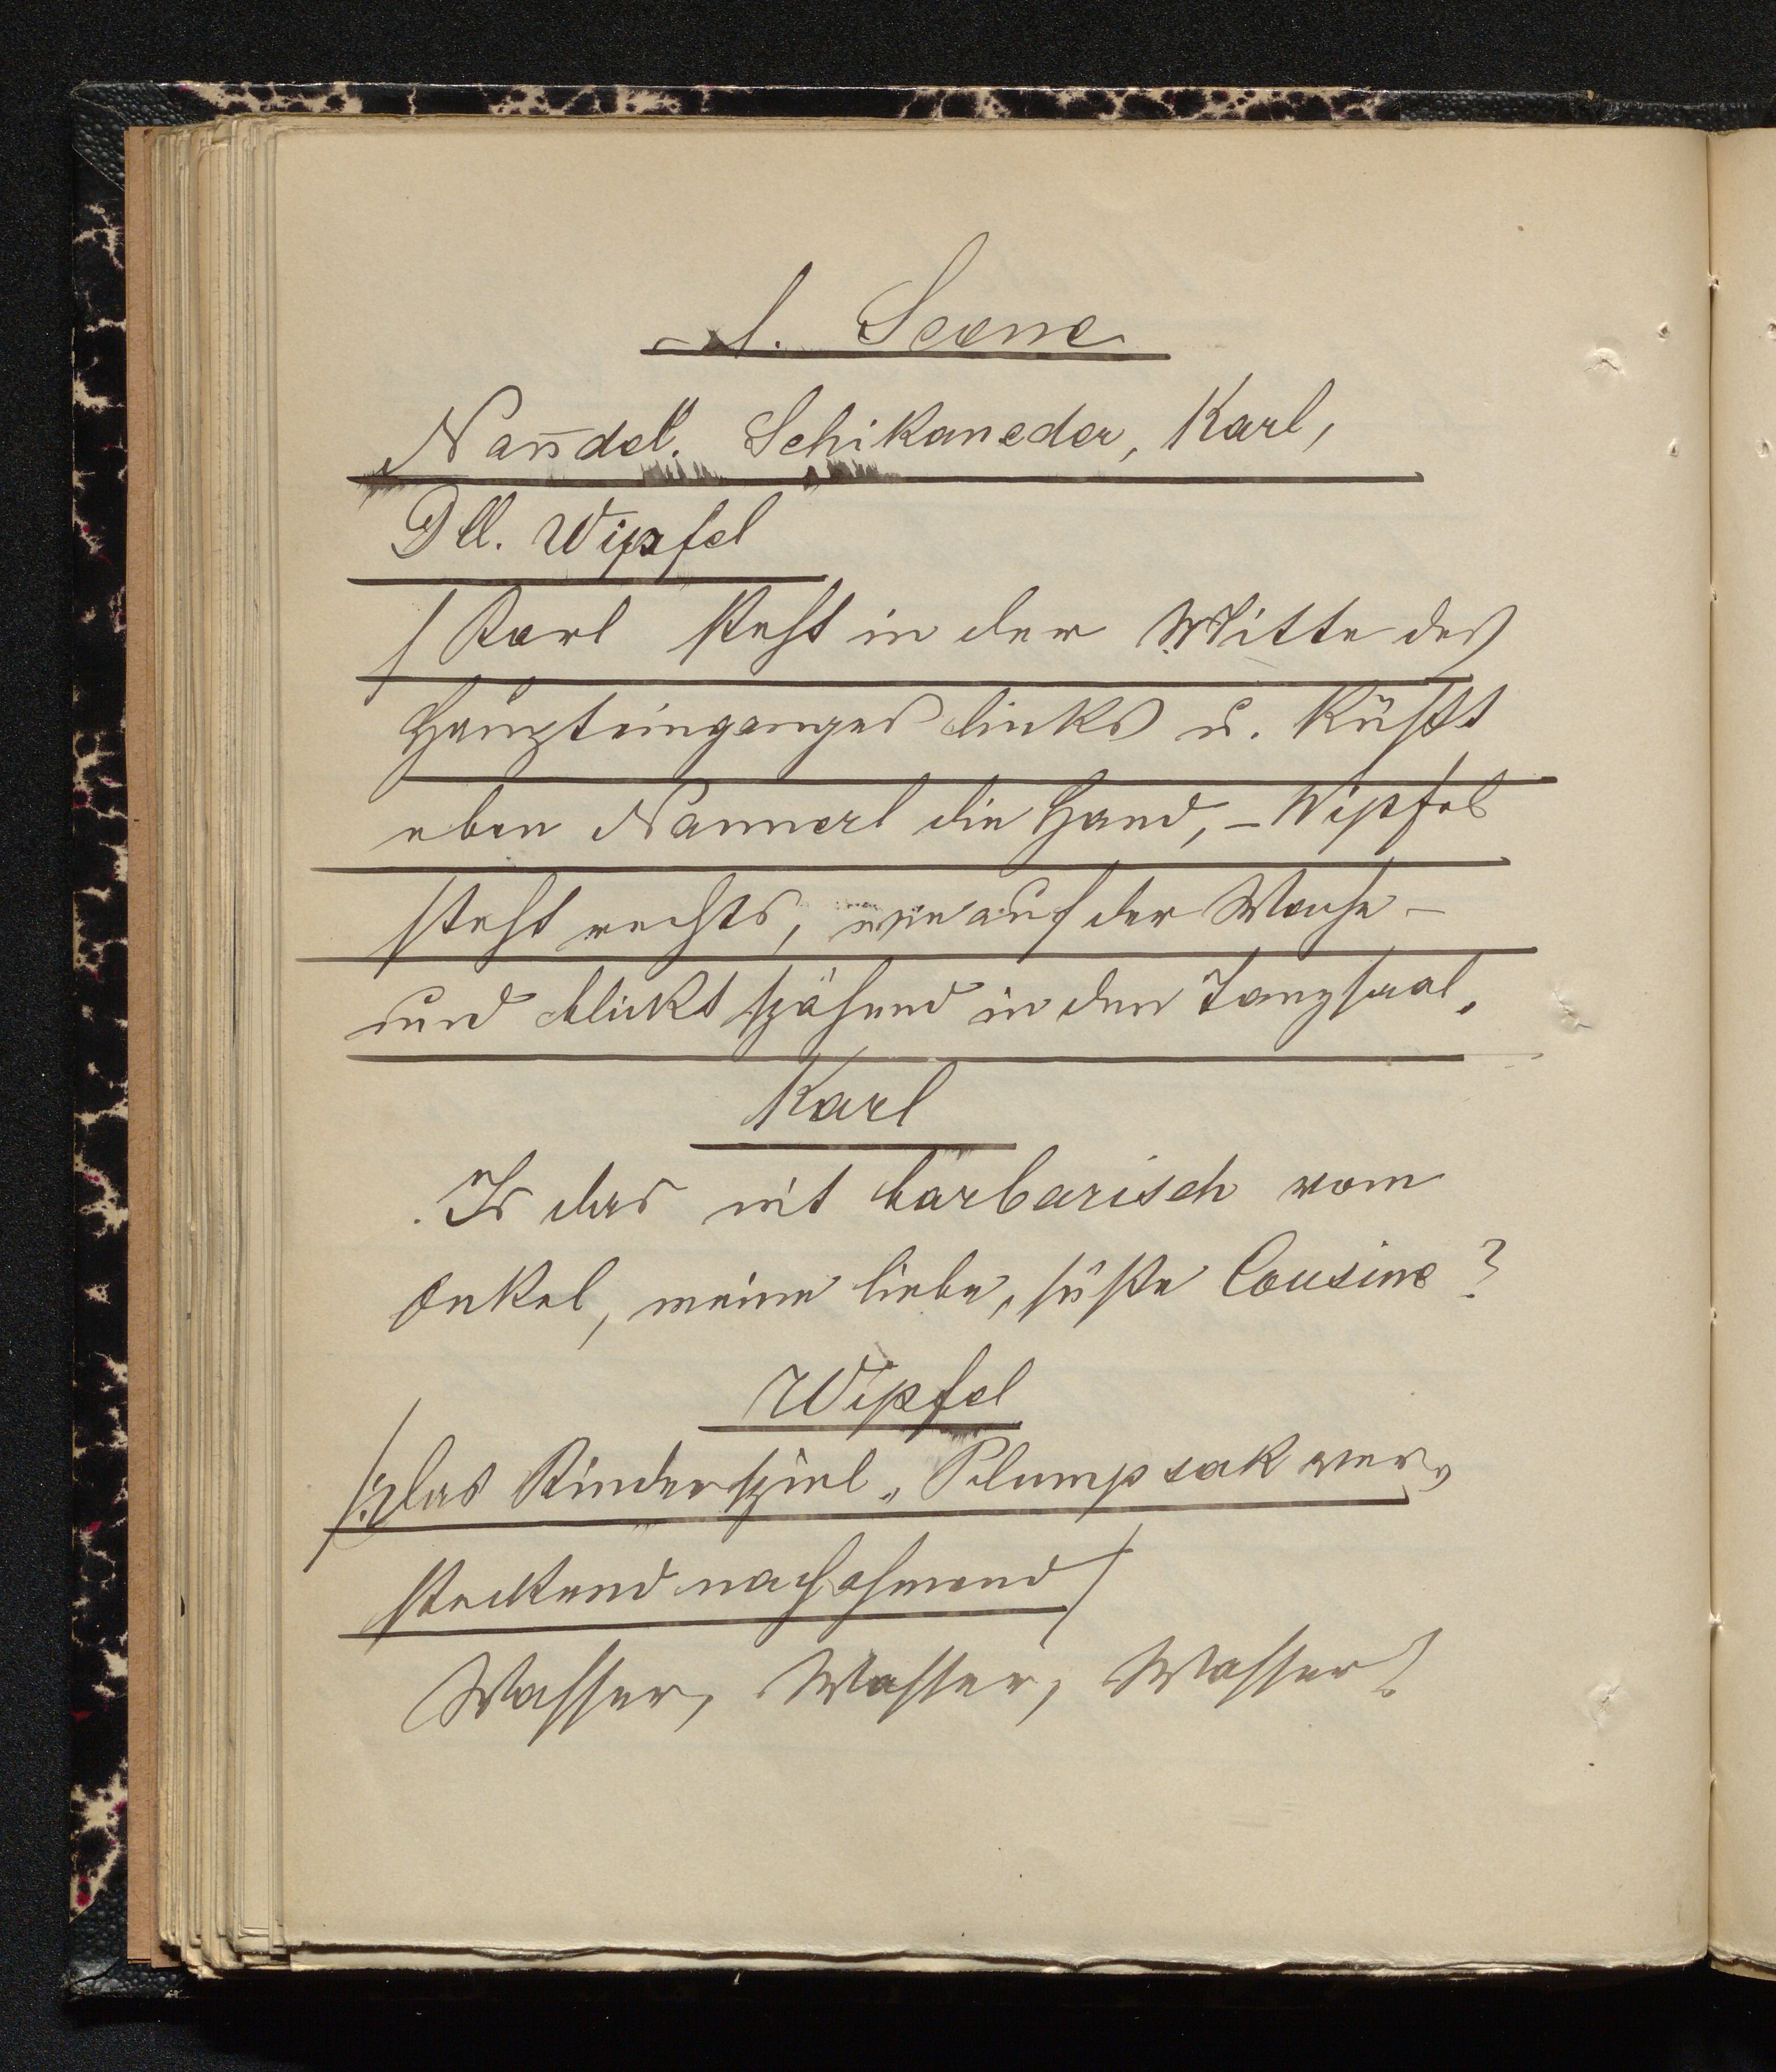 1. Scene
Nan̄derl. Schikaneder, Karl,
Dll. Wipfel
/ Karl steht in der Mitte des
Haupteinganges links u. küßt
eben Nannerl die Hand, – Wipfel
steht rechts, wie auf der Wache –
und blickt spähend in den Tanzsaal.
Karl
Is das nit barbarisch vom
Onkel, meine liebe, süße Cousine?
Wipfel
/: Das Kinderspiel „Plumpsak ver„
steckend nachahmend /
Wasser, Wasser, Wasser!